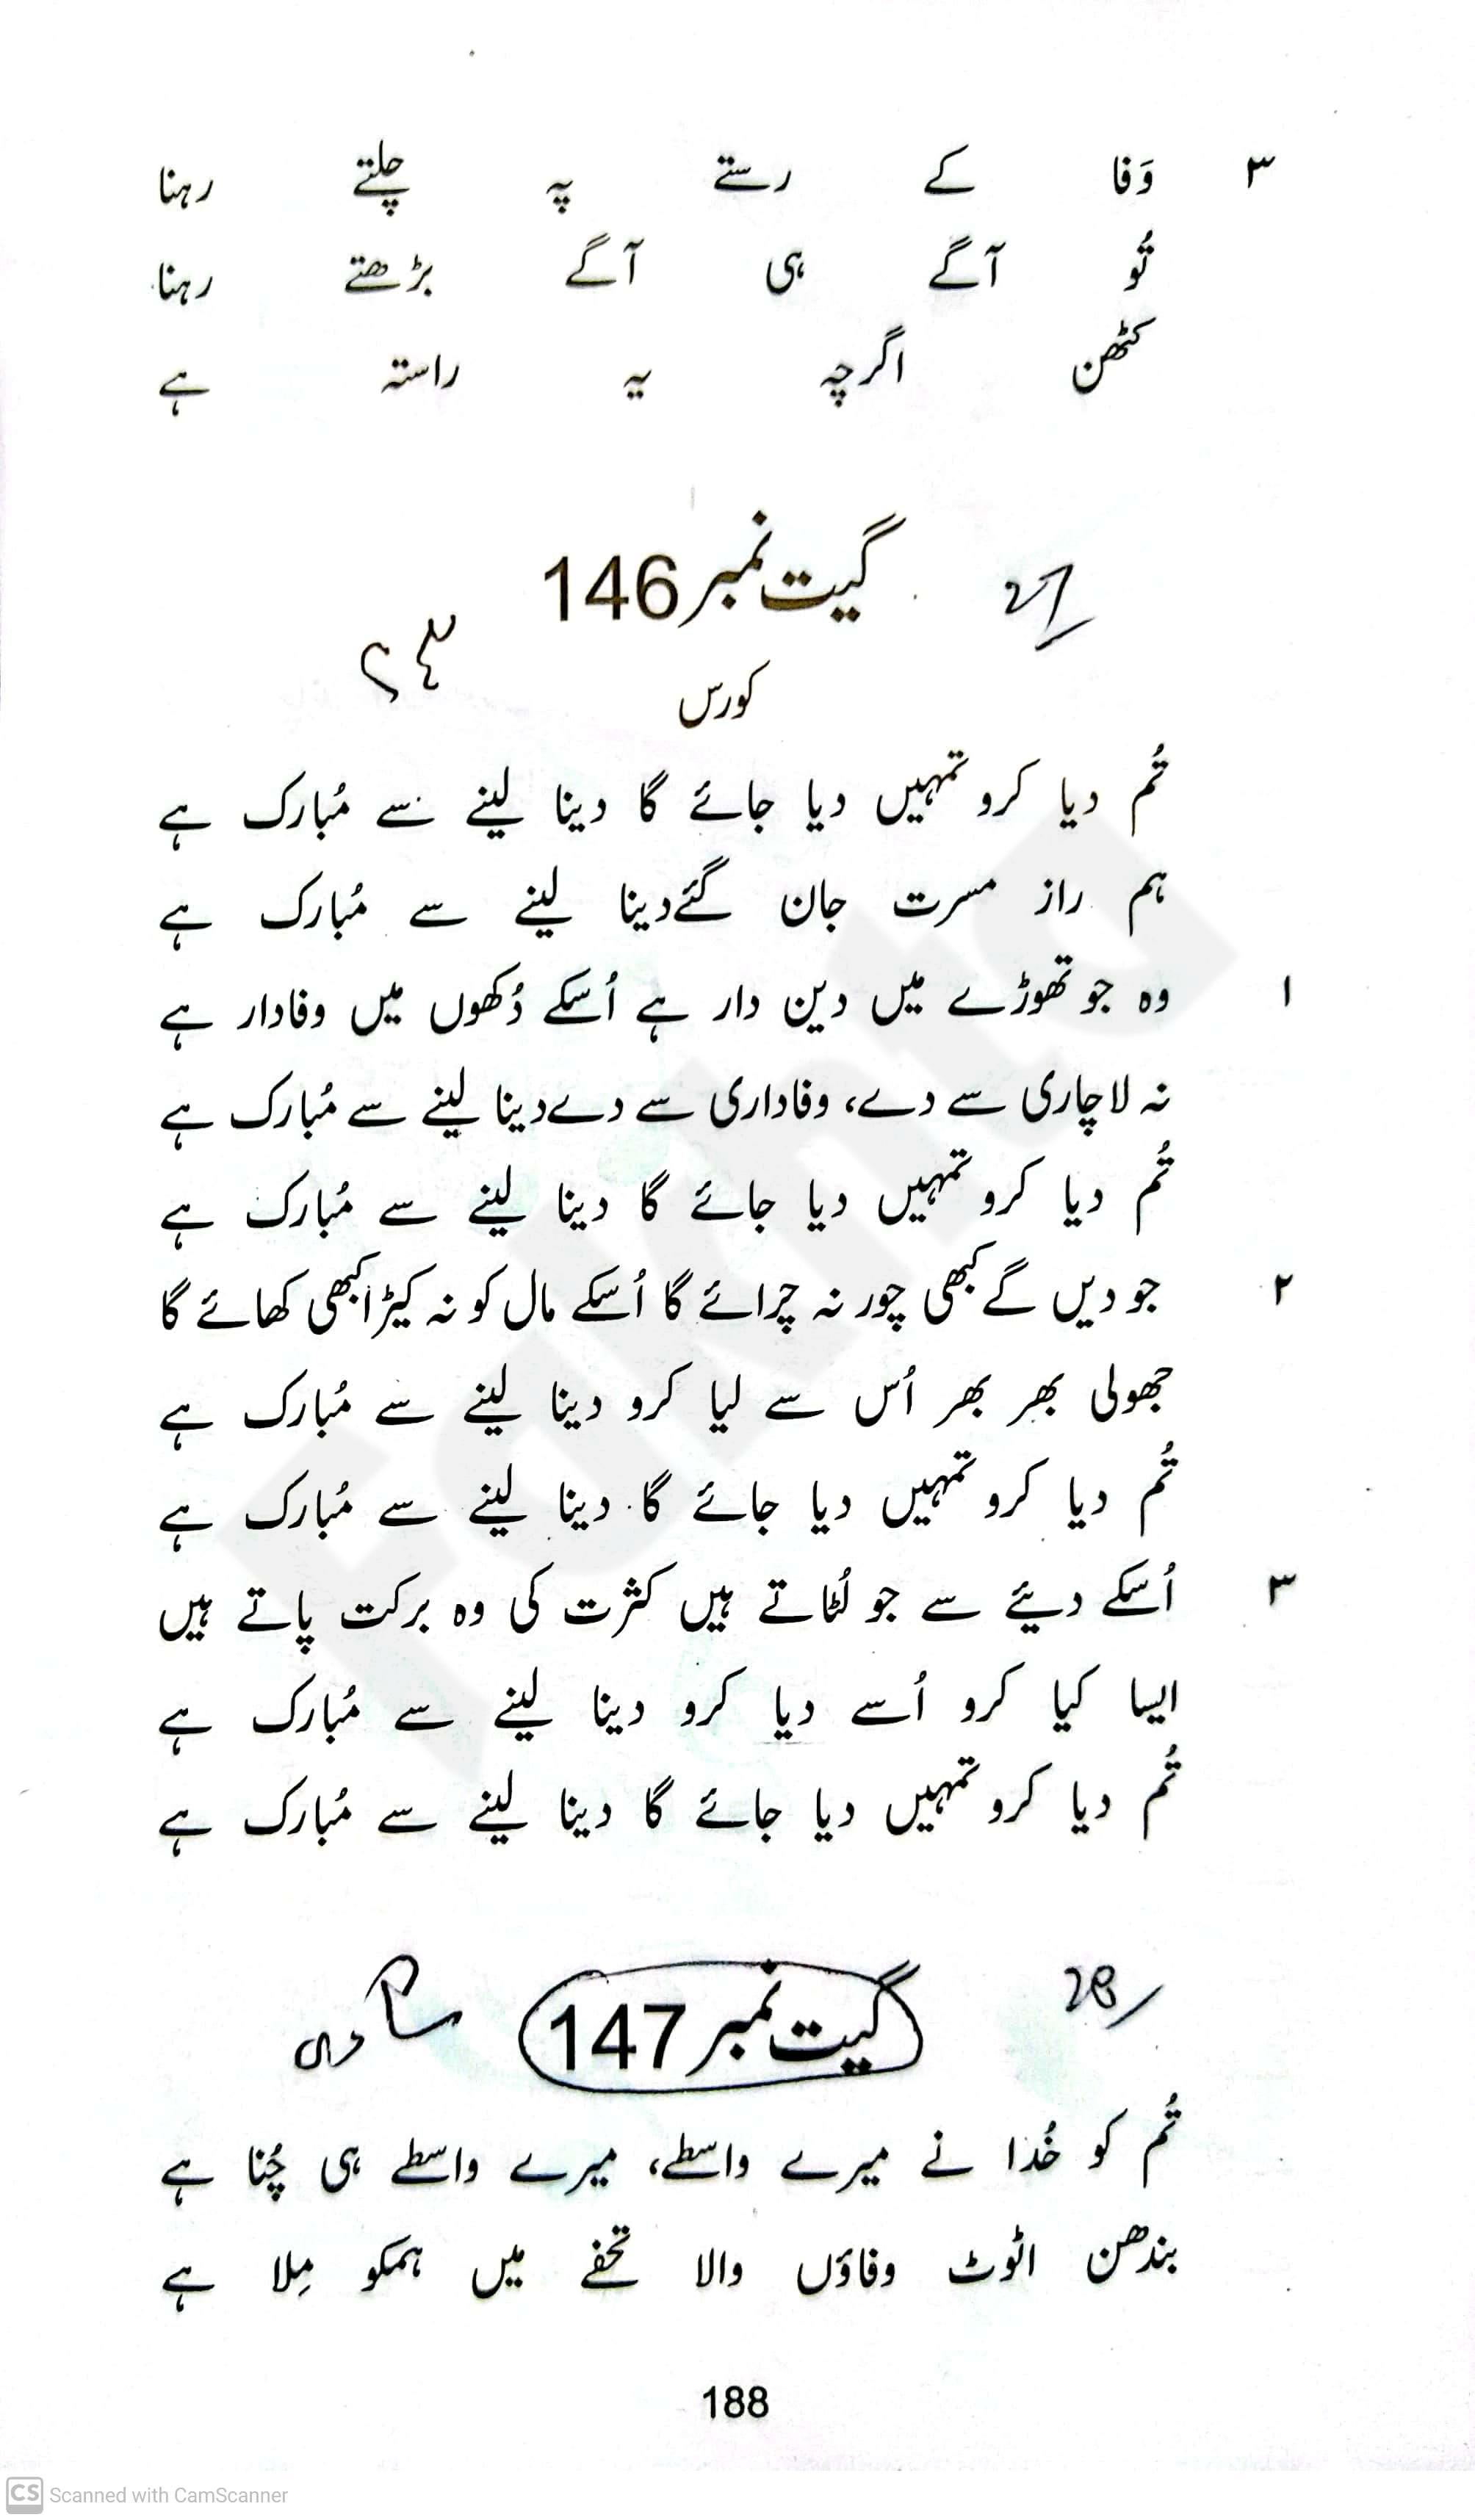 ۳ وَفا کے رستے پہ چلتے رہنا
تُو آگے ہی آگے بڑھتے رہنا
کٹھن اگرچہ یہ راستہ ہے
گیت نمبر 146
27
کورس
تُم دیا کرو تمہیں دیا جائے گا دینا لینے سے مُبارک ہے
ہم راز مسرت جان گئے دینا لینے سے مُبارک ہے
۱ وہ جو تھوڑے میں دین دار ہے اُسکے دُکھوں میں وفادار ہے
نہ لاچاری سے دے، وفاداری سے دے دینا لینے سے مُبارک ہے
تُم دیا کرو تمہیں دیا جائے گا دینا لینے سے مُبارک ہے
۲ جو دیں گے کبھی چور نہ چُرائے گا اُسکے مال کو نہ کیڑا کبھی کھائے گا
جھولی بھر بھر اُس سے لیا کرو دینا لینے سے مُبارک ہے
تُم دیا کرو تمہیں دیا جائے گا دینا لینے سے مُبارک ہے
۳ اُسکے دیئے سے جو لُٹاتے ہیں کثرت کی وہ برکت پاتے ہیں
ایسا کیا کرو اُسے دیا کرو دینا لینے سے مُبارک ہے
تُم دیا کرو تمہیں دیا جائے گا دینا لینے سے مُبارک ہے
28 گیت نمبر 147 شادی
تُم کو خُدا نے میرے واسطے، میرے واسطے ہی چُنا ہے
بندھن اٹوٹ وفاؤں والا تحفے میں ہمکو مِلا ہے
188
Fakhta
CS Scanned with CamScanner